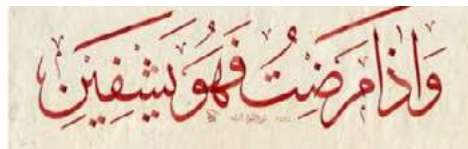 وَاِذَا مَرِضْتُ فَهُوَ يَشْفِيْنِ